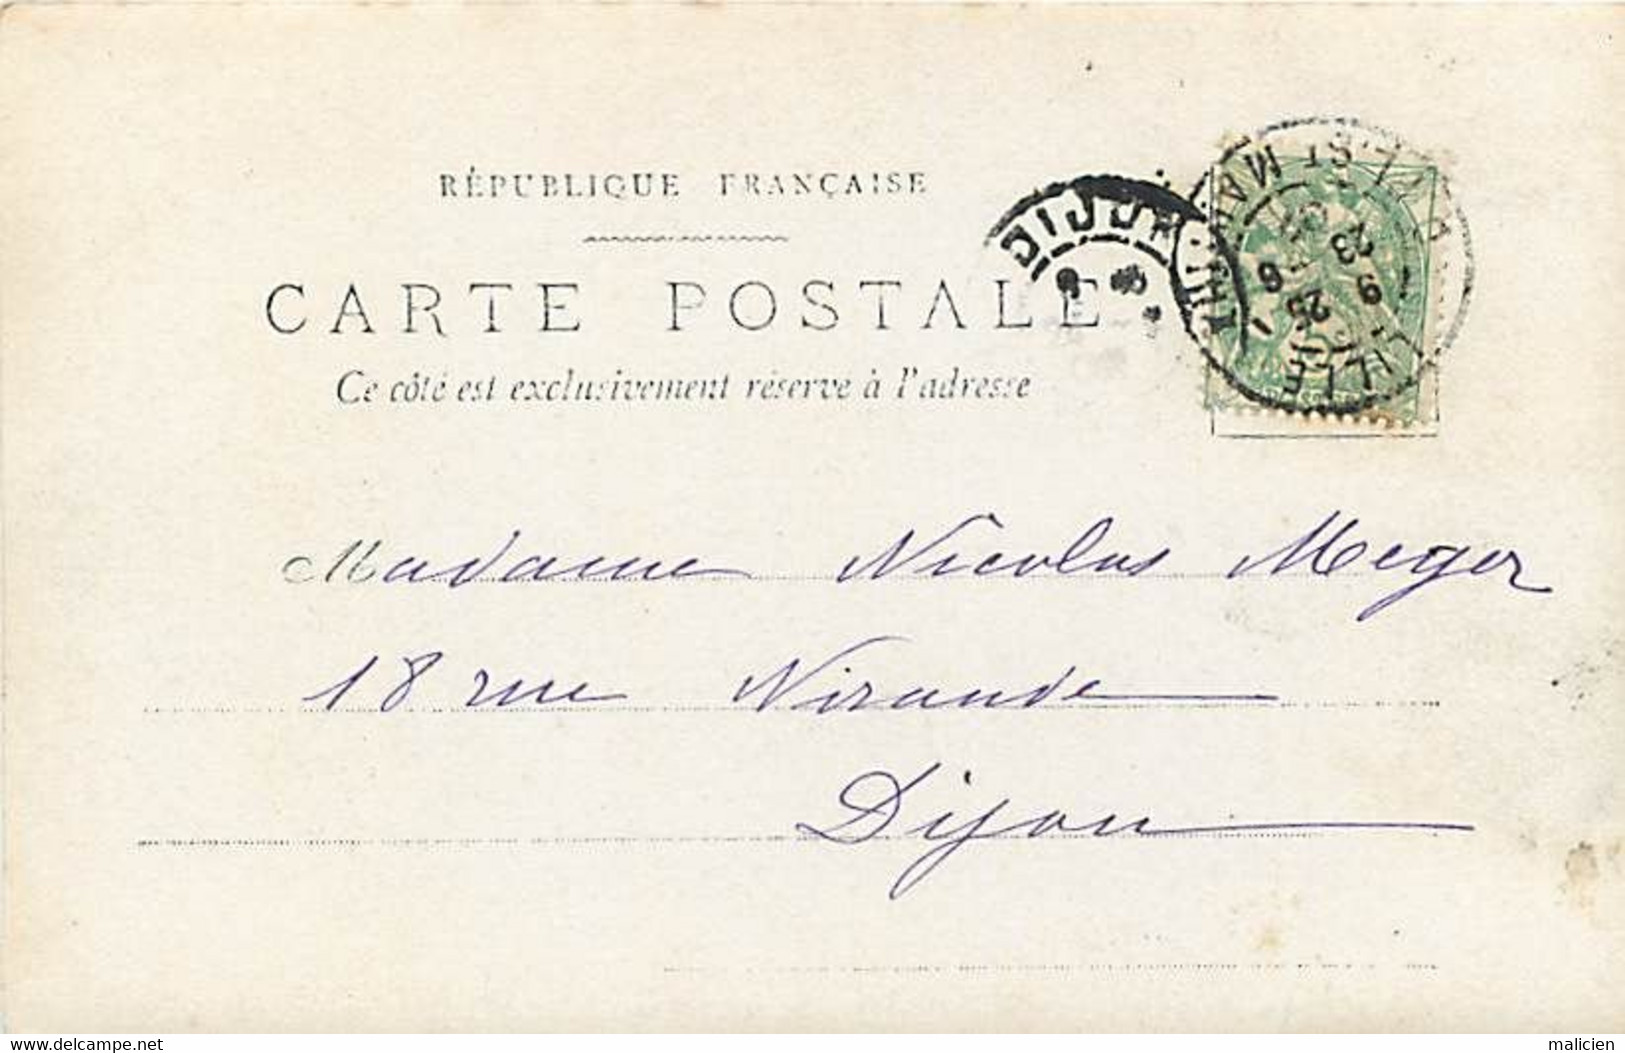 RÉPUBLIQUE FRANÇAISE
CARTE POSTALE
Ce côté est exclusivement réservé à l'adresse
DIJON
LILLE
ST MAURICE
9
23
25
6
Madame Nicolas Meger
18 rue Mirande
Dijon
www.delcampe.net
malicien